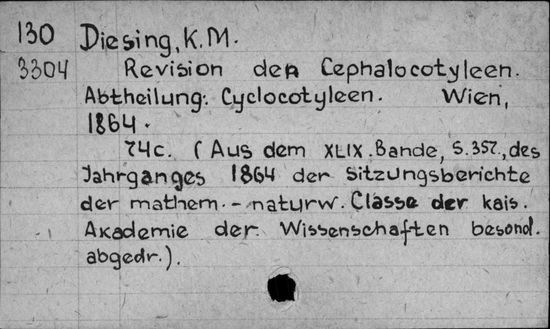 130 Diesing, K.M.
3304 Revision der Cephalocotyleen.
Abtheilung: Cyclocotyleen. Wien,
1864.
74c. (Aus dem XLIX. Bande, S.357., des
Jahrganges 1864 der Sitzungsberichte
der mathem.-naturw. Classe der kais.
Akademie der Wissenschaften besond.
abgedr.).